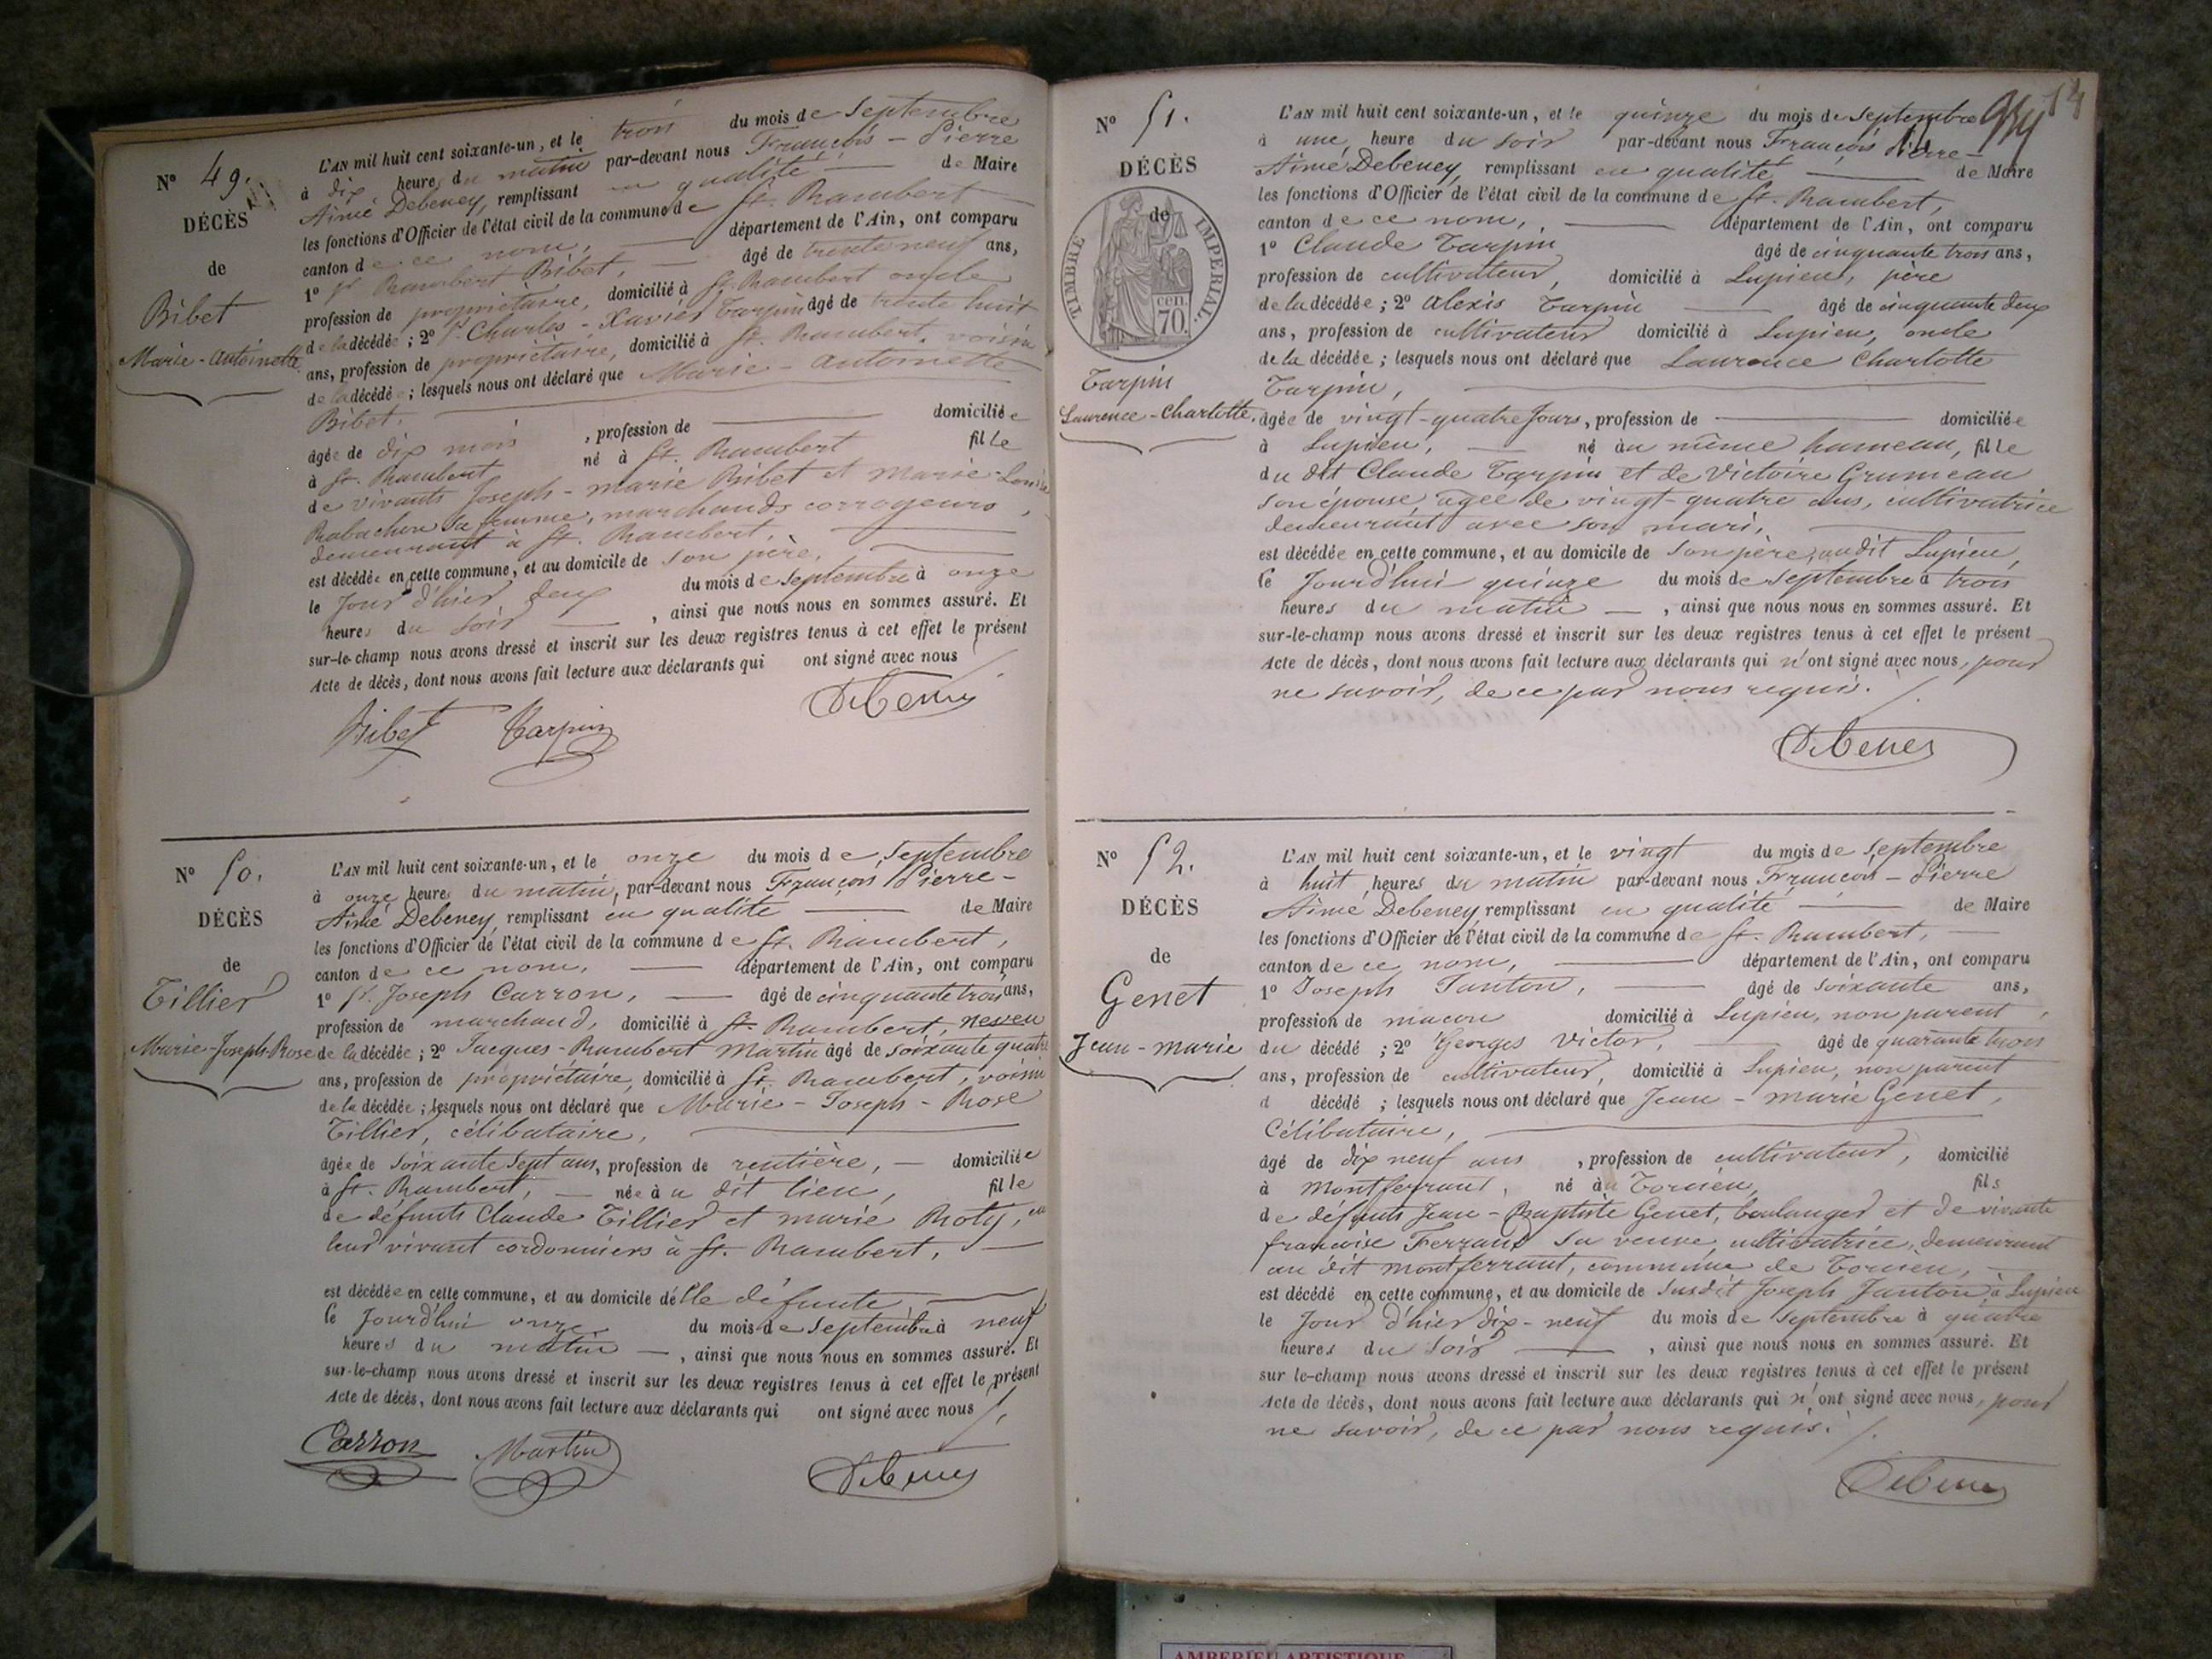 N° 49.
DÉCÈS
de
Bibet
Marie-Antoinette
L'AN mil huit cent soixante-un, et le trois du mois de Septembre
à dix heures du matin par-devant nous François-Pierre
Aimé Debeney, remplissant en qualité de Maire
les fonctions d'Officier de l'état civil de la commune de St. Rambert
canton de ce nom, département de l'Ain, ont comparu
1° Sr Rambert Bibet, âgé de trente neuf ans,
profession de propriétaire, domicilié à St. Rambert oncle
de la décédée ; 2° Sr Charles-Xavier Tarpin âgé de trente huit
ans, profession de propriétaire, domicilié à St. Rambert, voisin
de la décédée ; lesquels nous ont déclaré que Marie-Antoinette
Bibet,
âgée de dix mois , profession de domiciliée
à St. Rambert né à St. Rambert fille
de vivants Joseph-Marie Bibet et Marie-Louise
Rabachon sa femme, marchands corroyeurs,
demeurant à St. Rambert,
est décédée en cette commune, et au domicile de son père,
le Jour d'hier deux du mois de Septembre à onze
heures du soir , ainsi que nous nous en sommes assuré. Et
sur-le-champ nous avons dressé et inscrit sur les deux registres tenus à cet effet le présent
Acte de décès, dont nous avons fait lecture aux déclarants qui ont signé avec nous
Bibet Tarpin Debeney
N° 50.
DÉCÈS
de
Tillier
Marie-Joseph-Rose
L'AN mil huit cent soixante-un, et le onze du mois de Septembre
à onze heures du matin, par-devant nous François Pierre-
Aimé Debeney, remplissant en qualité de Maire
les fonctions d'Officier de l'état civil de la commune de St. Rambert,
canton de ce nom, département de l'Ain, ont comparu
1° Sr. Joseph Carron, âgé de cinquante trois ans,
profession de marchand, domicilié à St. Rambert, neveu
de la décédée ; 2° Jacques-Rambert Martin âgé de soixante quatre
ans, profession de propriétaire, domicilié à St. Rambert, voisin
de la décédée ; lesquels nous ont déclaré que Marie-Joseph-Rose
Tillier, célibataire,
âgée de soixante sept ans, profession de rentière, domiciliée
à St. Rambert, née au dit lieu, fille
de défunts Claude Tillier et Marie Roty, en
leur vivant cordonniers à St. Rambert,
est décédée en cette commune, et au domicile de lle défunte
le Jourd'hui onze du mois de Septembre à neuf
heures du matin , ainsi que nous nous en sommes assuré. Et
sur-le-champ nous avons dressé et inscrit sur les deux registres tenus à cet effet le présent
Acte de décès, dont nous avons fait lecture aux déclarants qui ont signé avec nous
Carron Martin Debeney
14
N° 51.
DÉCÈS
de
TIMBRE IMPERIAL
70 cen.
Tarpin
Laurence-Charlotte
L'AN mil huit cent soixante-un, et le quinze du mois de Septembre
à une heure du soir par-devant nous François Pierre-
Aimé Debeney, remplissant en qualité de Maire
les fonctions d'Officier de l'état civil de la commune de St. Rambert,
canton de ce nom, département de l'Ain, ont comparu
1° Claude Tarpin âgé de cinquante trois ans,
profession de cultivateur, domicilié à Lupieu, père
de la décédée ; 2° Alexis Tarpin âgé de cinquante deux
ans, profession de cultivateur domicilié à Lupieu, oncle
de la décédée ; lesquels nous ont déclaré que Laurence Charlotte
Tarpin,
âgée de vingt-quatre Jours, profession de domiciliée
à Lupieu, né au même hameau, fille
du dit Claude Tarpin et de Victoire Grumeau
son épouse, agée de vingt-quatre ans, cultivatrice
demeurant avec son mari,
est décédée en cette commune, et au domicile de son père, audit Lupieu,
le Jourd'hui quinze du mois de Septembre à trois
heures du matin , ainsi que nous nous en sommes assuré. Et
sur-le-champ nous avons dressé et inscrit sur les deux registres tenus à cet effet le présent
Acte de décès, dont nous avons fait lecture aux déclarants qui n'ont signé avec nous, pour
ne savoir, de ce par nous requis.
Debeney
N° 52.
DÉCÈS
de
Genet
Jean-Marie
L'AN mil huit cent soixante-un, et le vingt du mois de Septembre
à huit heures du matin par-devant nous François-Pierre
Aimé Debeney, remplissant en qualité de Maire
les fonctions d'Officier de l'état civil de la commune de St. Rambert,
canton de ce nom, département de l'Ain, ont comparu
1° Joseph Janton, âgé de soixante ans,
profession de maçon domicilié à Lupieu, non parent
du décédé ; 2° Georges Victor, âgé de quarante trois
ans, profession de cultivateur, domicilié à Lupieu, non parent
d décédé ; lesquels nous ont déclaré que Jean-Marie Genet,
Célibataire,
âgé de dix neuf ans , profession de cultivateur, domicilié
à Montferrant, né à Torcieu, fils
de défunts Jean-Baptiste Genet, boulanger et de vivante
françoise Ferrand sa veuve, cultivatrice, demeurant
au dit Montferrant, commune de Torcieu,
est décédé en cette commune, et au domicile de susdit Joseph Janton à Lupieu
le Jour d'hier dix-neuf du mois de Septembre à quatre
heures du soir , ainsi que nous nous en sommes assuré. Et
sur le-champ nous avons dressé et inscrit sur les deux registres tenus à cet effet le présent
Acte de décès, dont nous avons fait lecture aux déclarants qui n'ont signé avec nous, pour
ne savoir, de ce par nous requis.
Debeney
AMBERIEU ARTISTIQUE